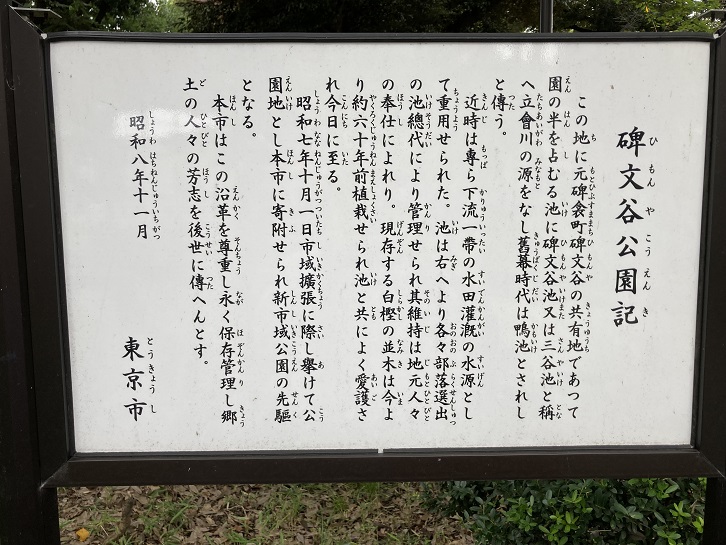 碑文谷公園記
この地に元碑衾町碑文谷の共有地であつて
園の半を占むる池に碑文谷池又は三谷池と稱
へ立會川の源をなし舊幕時代は鴨池とされし
と傳う。
近時は専ら下流一帶の水田灌漑の水源とし
て重用せられた。池は右へより各々部落選出
の池總代により管理せられ其維持は地元人々
の奉仕によれり。現存する白樫の並木は今よ
り約六十年前植栽せられ池と共によく愛護さ
れ今日に至る。
昭和七年十月一日市域擴張に際し擧けて公
園地とし本市に寄附せられ新市域公園の先駆
となる。
本市はこの沿革を尊重し永く保存管理し郷
土の人々の芳志を後世に傳へんとす。
昭和八年十一月
東京市